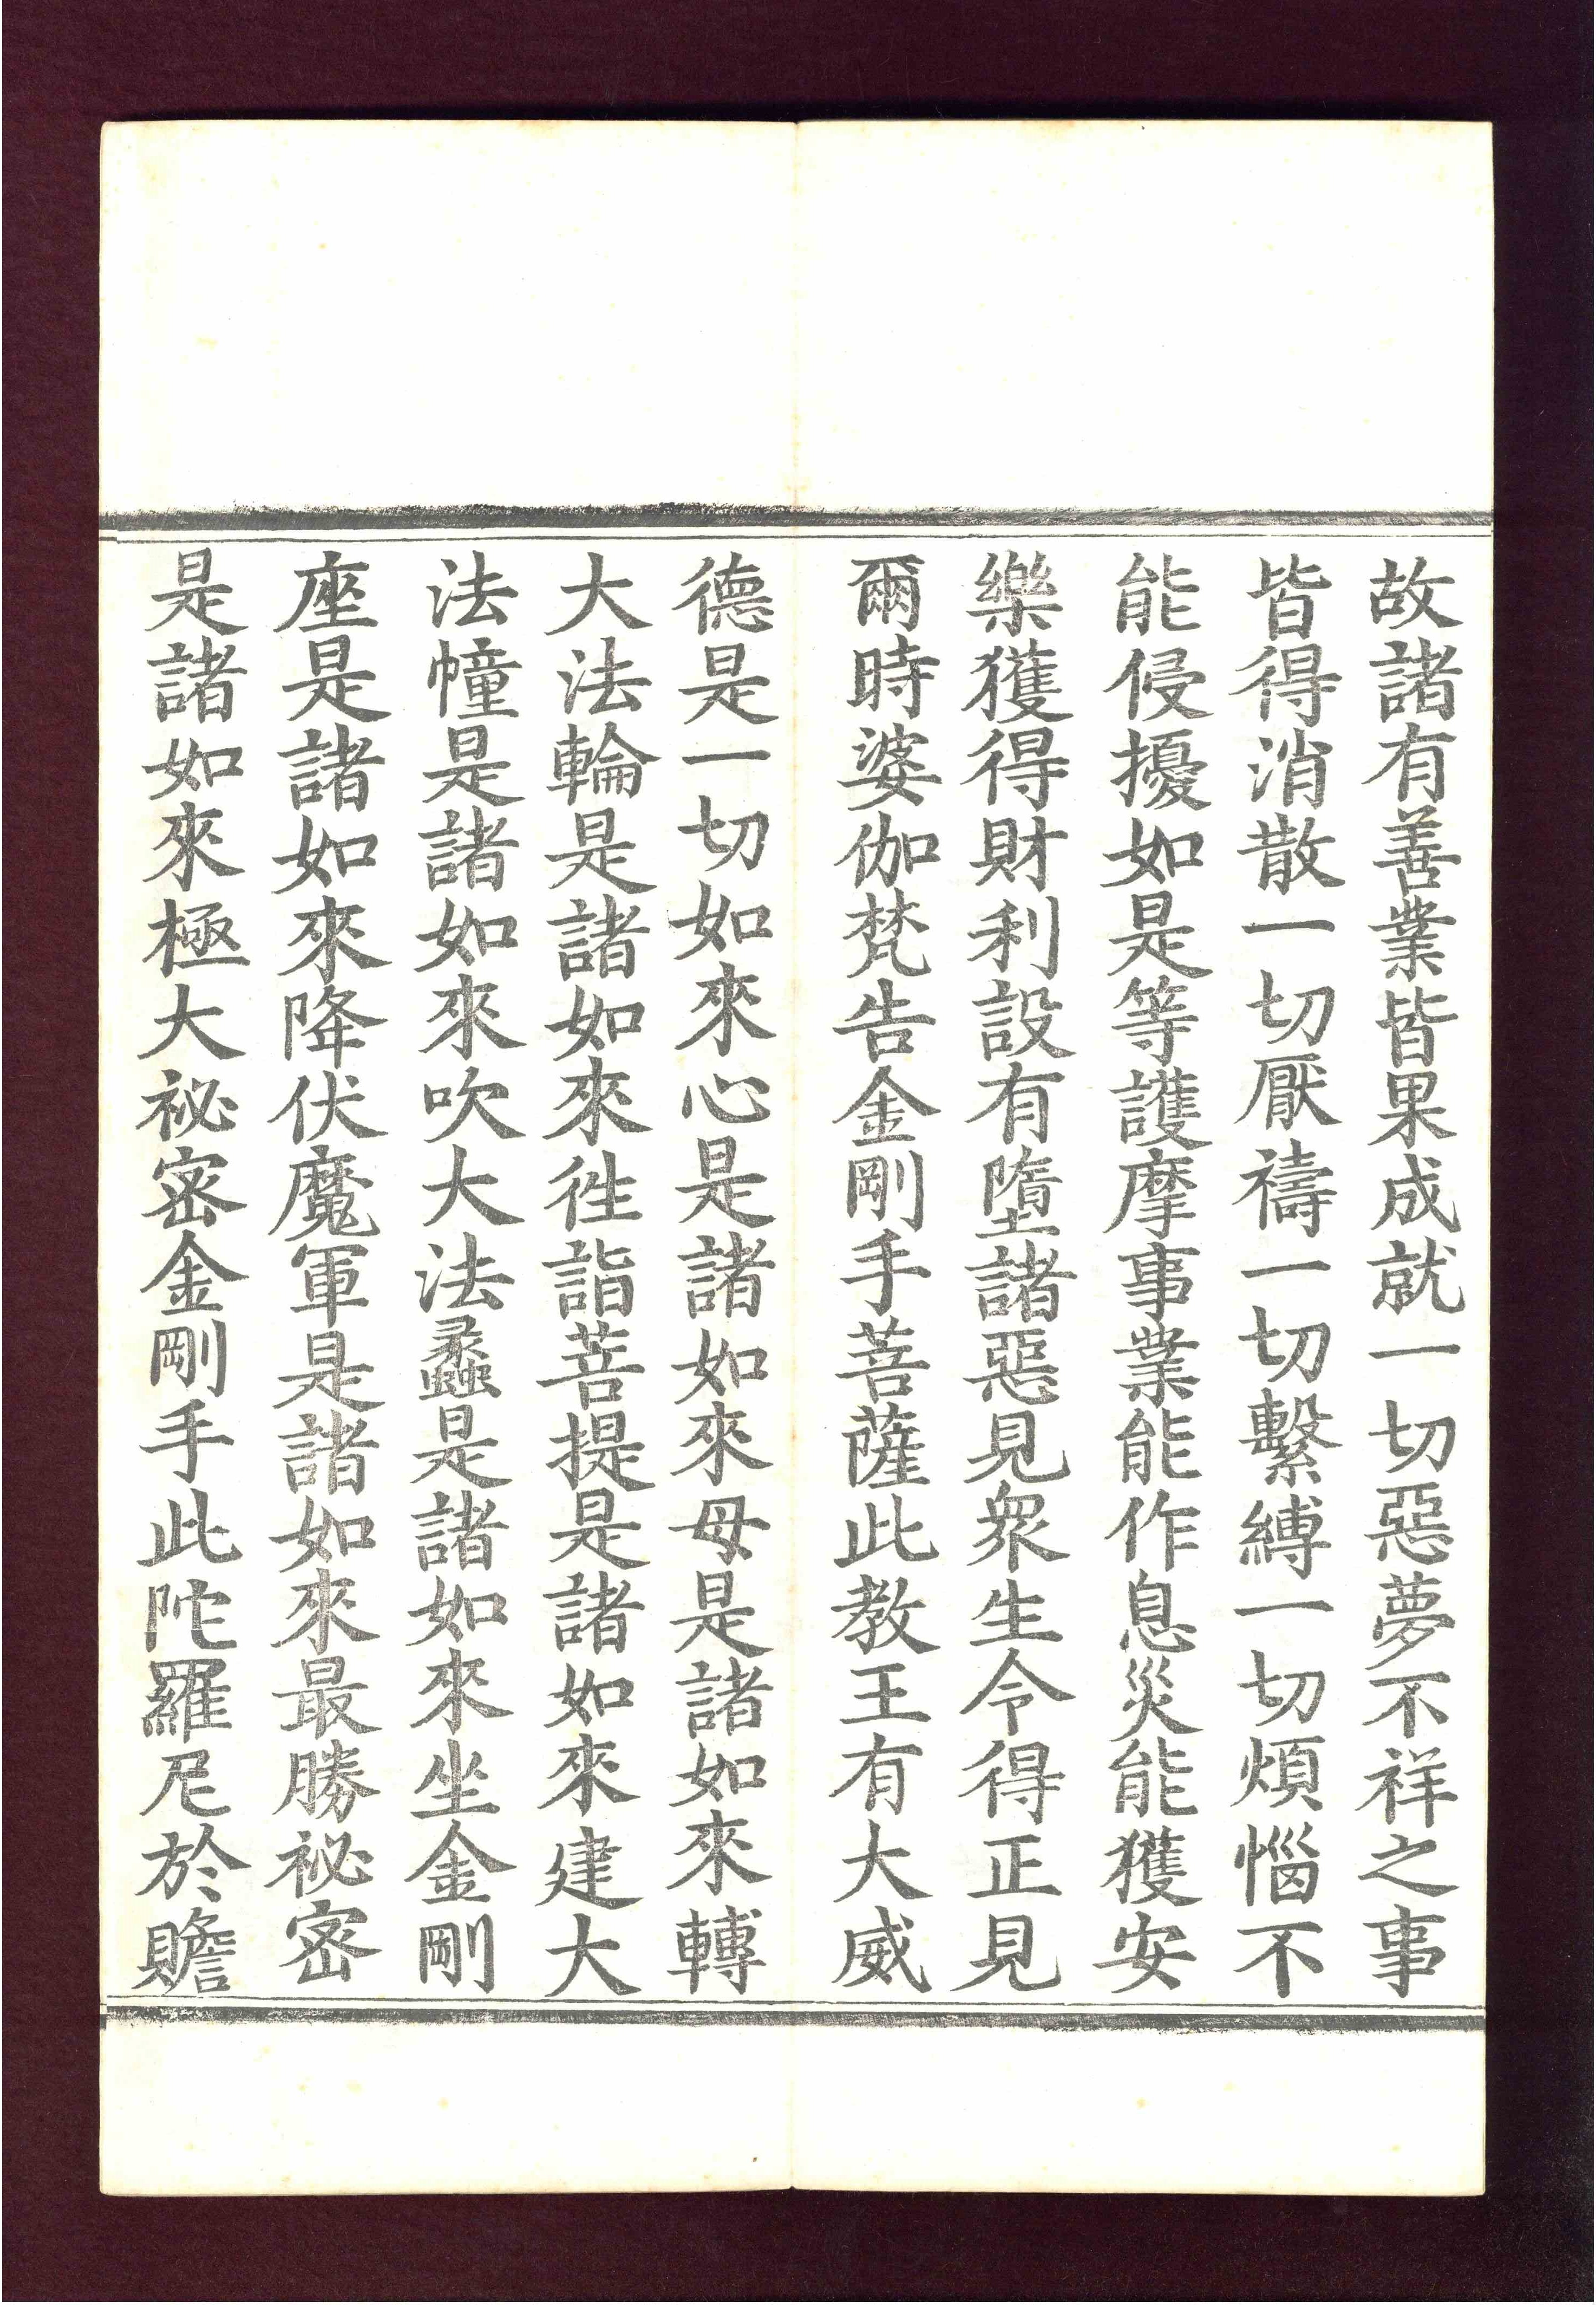 故諸有善業皆果成就一切惡夢不祥之事
皆得消散一切厭禱一切繫縛一切煩惱不
能侵擾如是等護摩事業能作息災能獲安
樂獲得財利設有墮諸惡見衆生令得正見
爾時婆伽梵告金剛手菩薩此教王有大威
德是一切如來心是諸如來母是諸如來轉
大法輪是諸如來徃詣菩提是諸如來建大
法幢是諸如來吹大法蠡是諸如來坐金剛
座是諸如來降伏魔軍是諸如來最勝祕密
是諸如來極大祕密金剛手此陀羅尼於贍